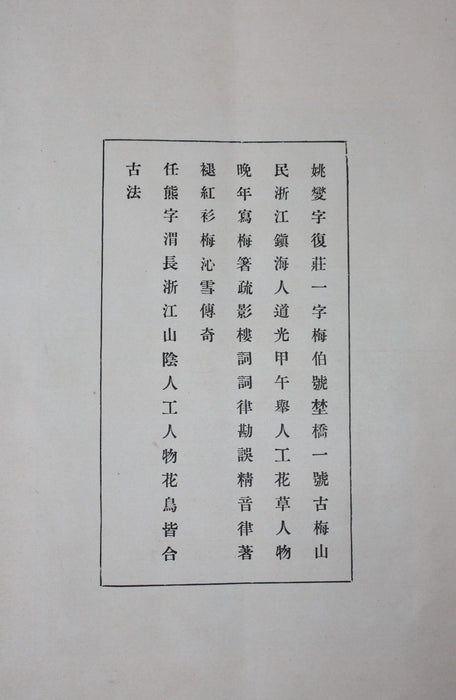 姚燮字復莊一字梅伯號埜橋一號古梅山
民浙江鎮海人道光甲午舉人工花草人物
晚年寫梅箸疏影樓詞詞律勘誤精音律著
褪紅衫梅沁雪傳奇
任熊字渭長浙江山陰人工人物花鳥皆合
古法